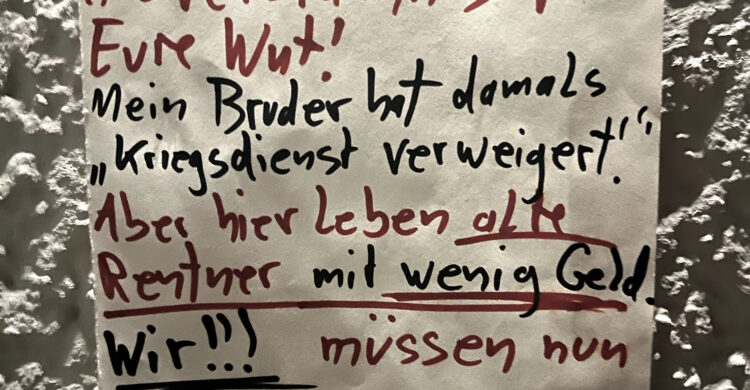 Eure Wut!
Mein Bruder hat damals
„Kriegsdienst verweigert!“
Aber hier leben alte
Rentner mit wenig Geld.
Wir!!! müssen nun